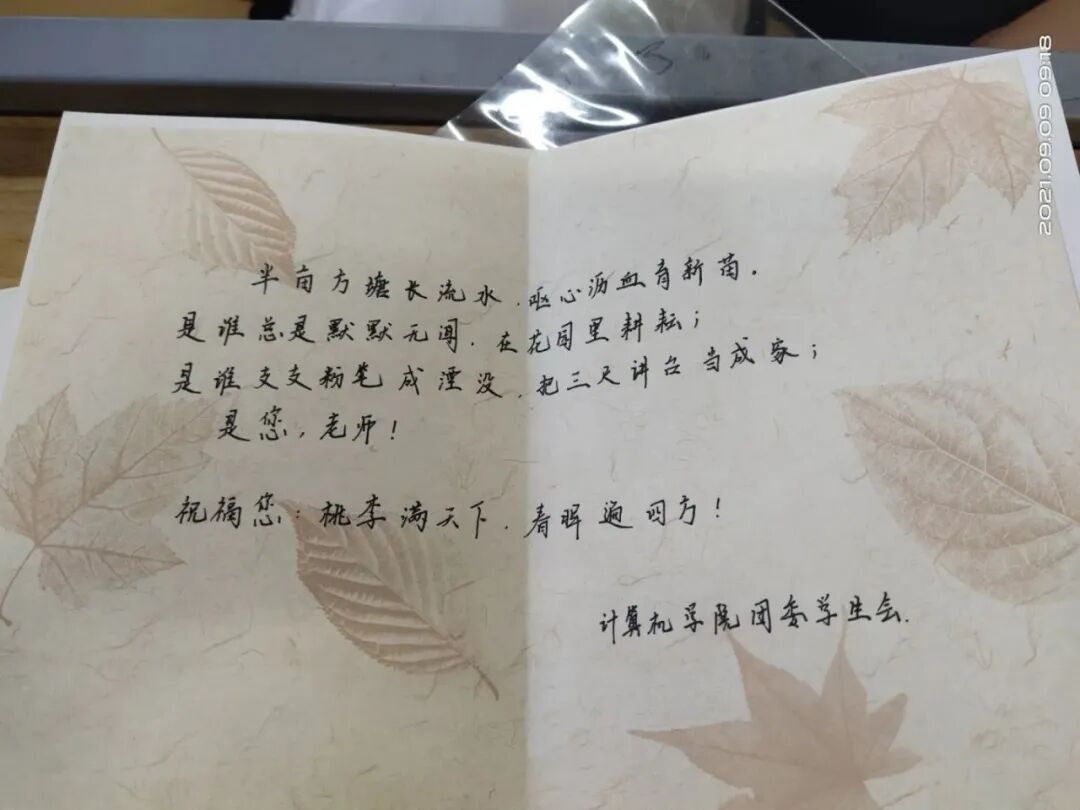 半亩方塘长流水，呕心沥血育新苗。
是谁总是默默无闻，在花园里耕耘；
是谁支支粉笔成湮没，把三尺讲台当成家；
是您，老师！
祝福您：桃李满天下，春晖遍四方！
计算机学院团委学生会.
2021.09.09 09:18